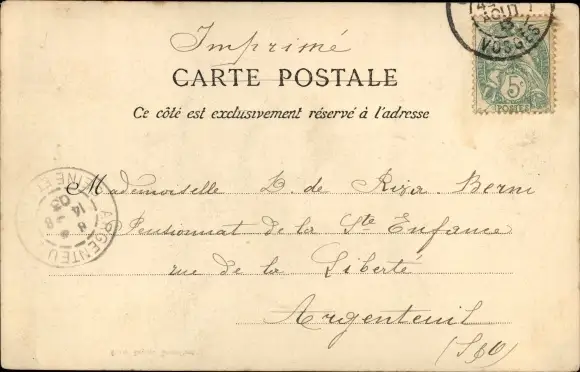 Imprimé
CARTE POSTALE
Ce côté est exclusivement réservé à l'adresse
AOUT
VOSGES
5c
POSTES
Mademoiselle L. de Riza-Berni
Pensionnat de la Ste Enfance
rue de la Liberté
Argenteuil
(S&O)
ARGENTEUIL
SEINE ET
14
03
8